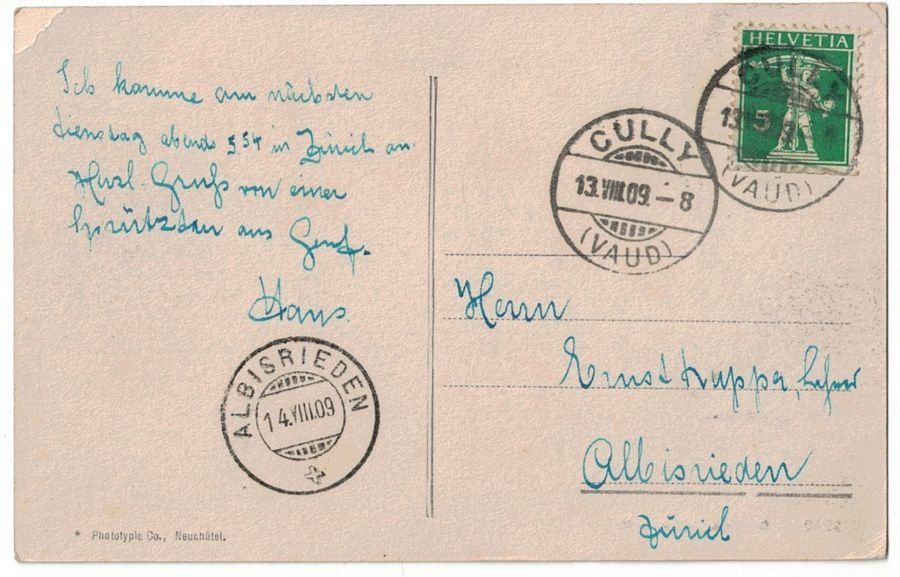 Ich komme am nächsten
Dienstag abends 5 54 in Zürich an.
Herzl. Gruss von einer
aus Genf.
Hans.
ALBISRIEDEN
14.VIII.09
* Phototypie Co., Neuchâtel.
HELVETIA
5
CULLY
13.VIII.09.-8
(VAUD)
CULLY
13.
(VAUD)
Herrn
Ernst Kuppa, Lehrer
Albisrieden
Zürich